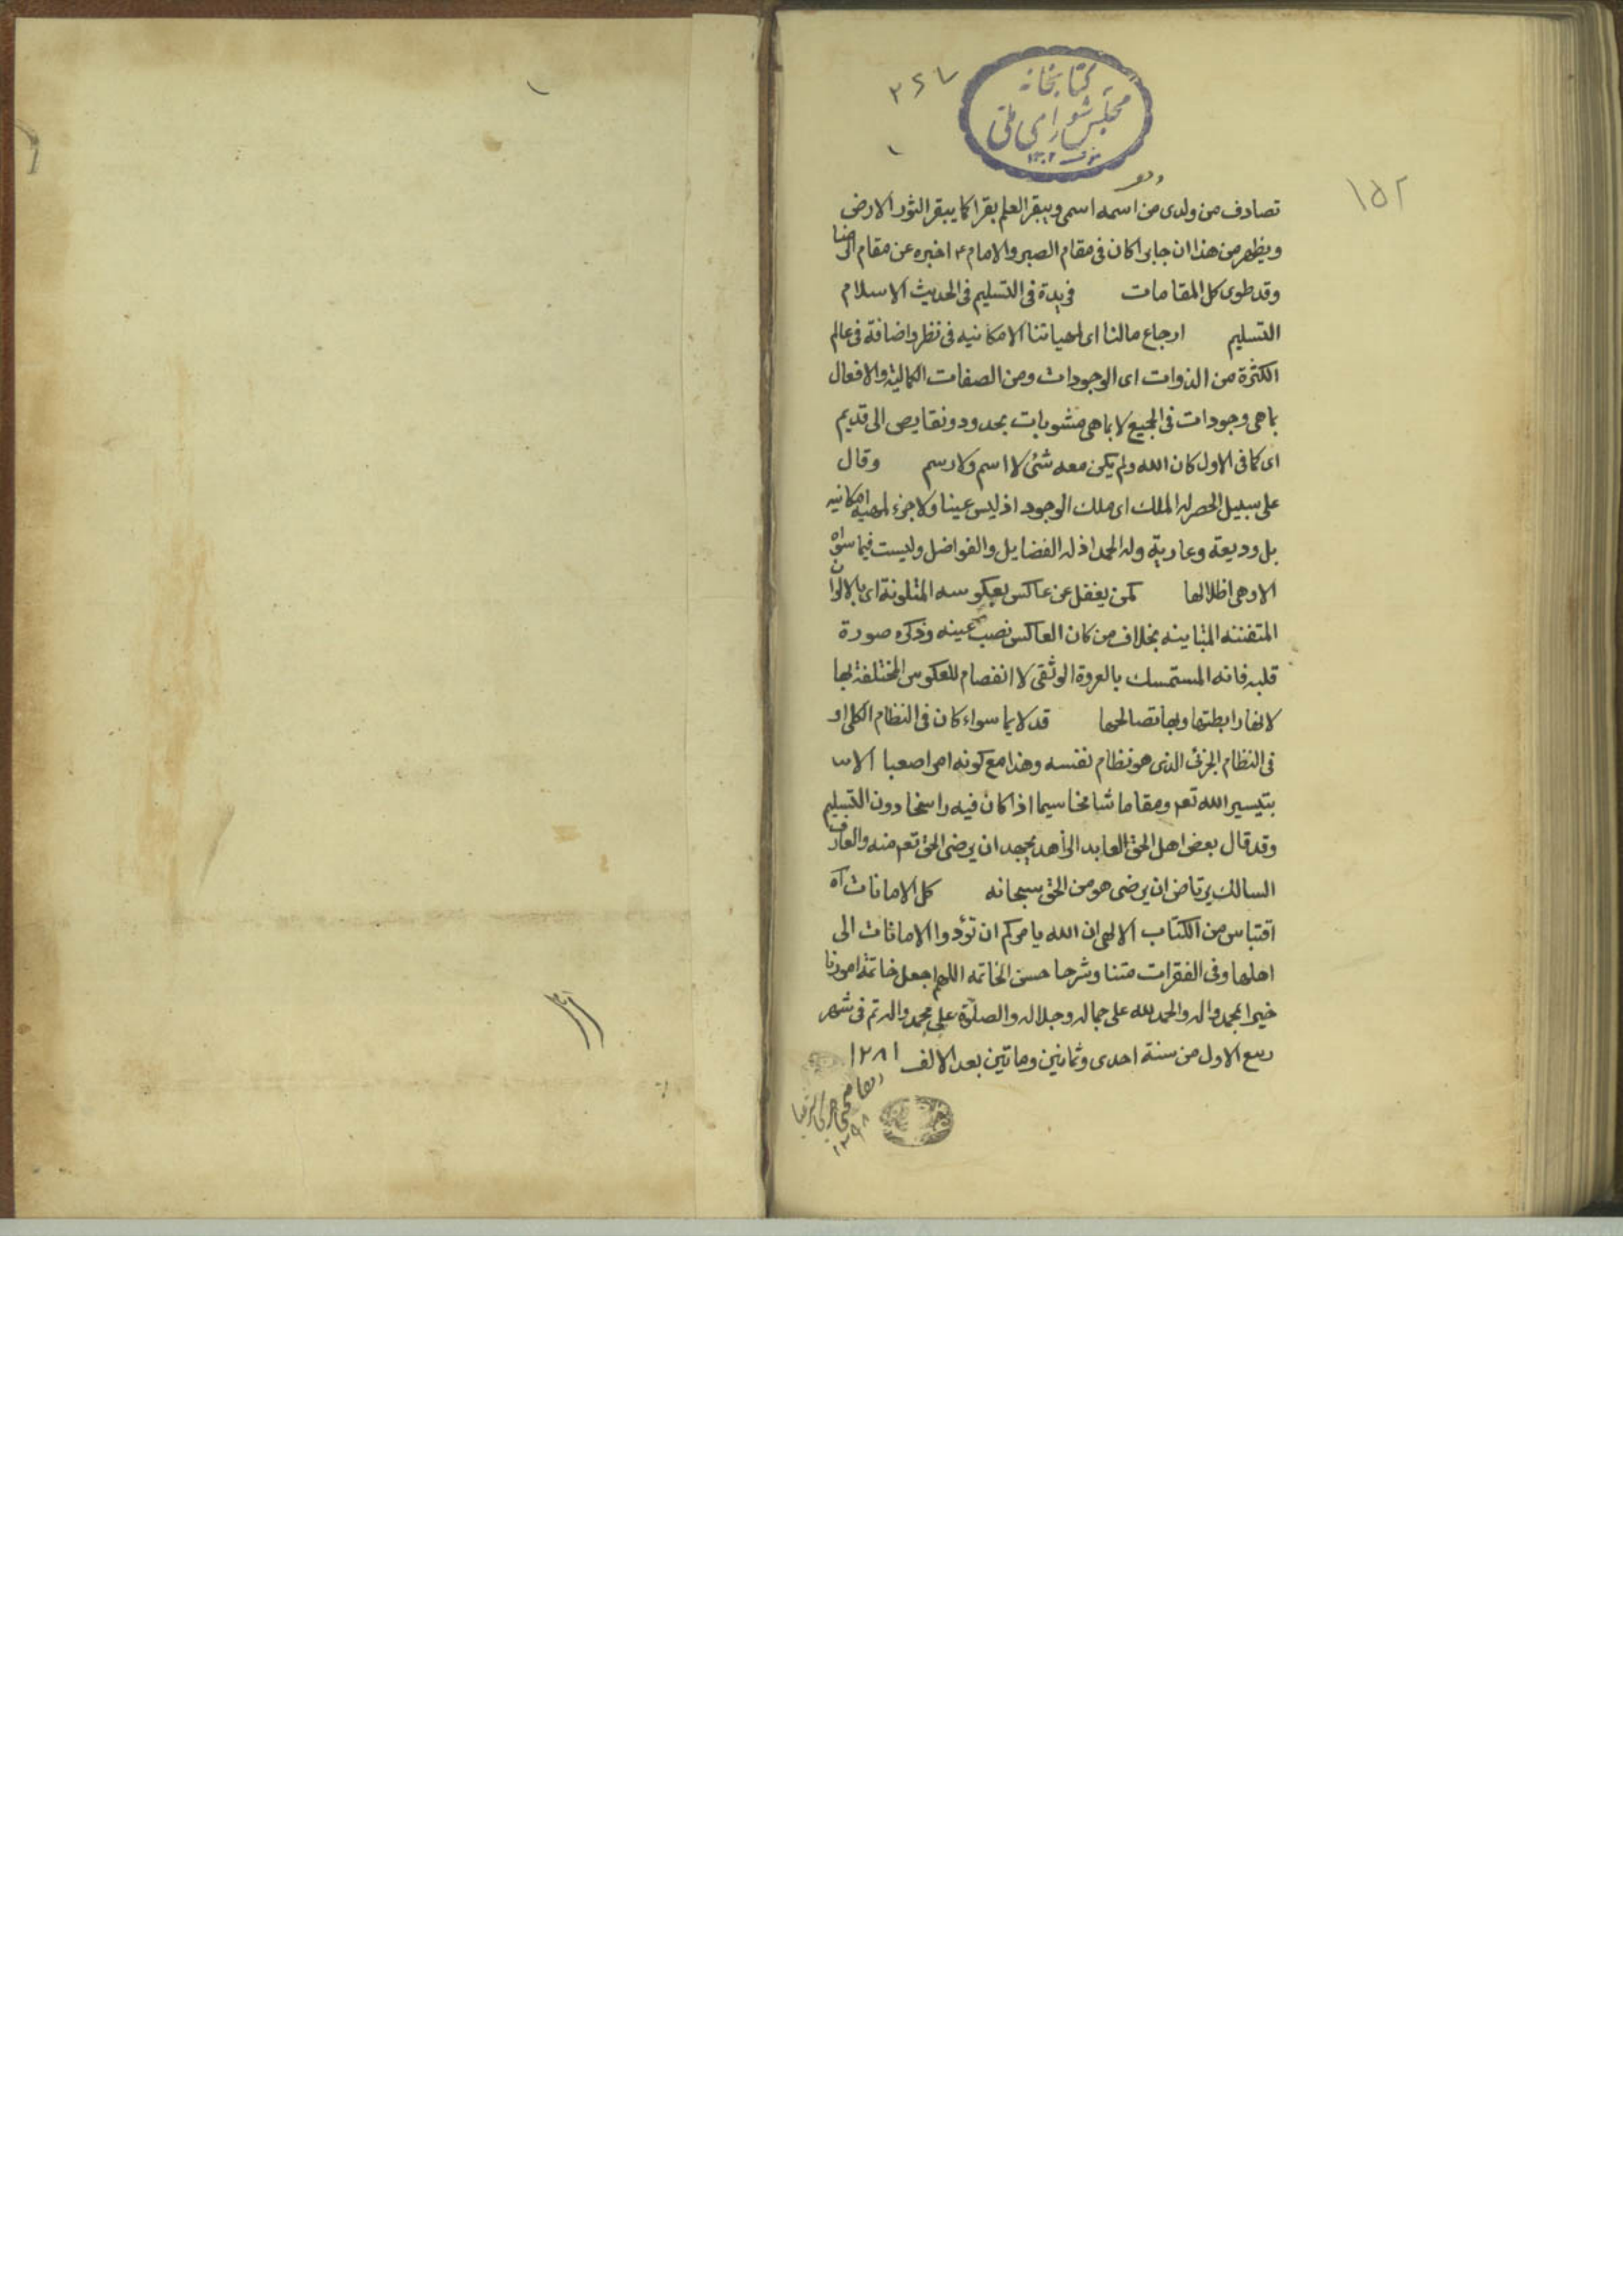 کتابخانه
مجلس شورای ملی
۱۳۰۲
۱۵۲
تصادف من ولدی من اسمه اسمی و یبقر العلم بقرا کما یبقر الثور الارض
و یظهر من هذا ان جابرا کان فی مقام الصبر و الامام ع اخبره عن مقام الرضا
و قد طوی کل المقامات فریدة فی التسلیم فی الحدیث الاسلام
التسلیم ارجاع مالنا ای لمهیاتنا الامکانیه فی نظر و اضافة فی عالم
الکثرة من الذوات ای الوجودات و من الصفات الکمالیة و الافعال
بماهی وجودات فی الجمیع لا بماهی مشوبات بحدود و نقایص الی قدیم
ای کما فی الاول کان الله و لم یکن معه شئ لا اسم و لا رسم وقال
علی سبیل الحصر له الملک ای ملک الوجود اذ لیس عینا و لا جزء لمهیه امکانیه
بل ودیعة و عاریة و له الحمد اذ له الفضایل و الفواضل و لیست فیما سواه
الا و هی اظلالها کمن یغفل عن عاکس بعکوسه المتلونة ای بالالوان
المتفننه المتباینه بخلاف من کان العاکس نصب عینه و ذکره صورة
قلبه فانه المستمسک بالعروة الوثقی لا انفصام للعکوس المختلفة بها
لانها رابطتها و بها تصالحها قد لایما سواء کان فی النظام الکلی او
فی النظام الجزئی الذی هو نظام نفسه و هذا مع کونه امرا صعبا الا
بتیسیر الله تعم و مقاما شامخا سیما اذا کان فیه راسخا دون التسلیم
و قد قال بعض اهل الحق العابد الزاهد یجهد ان یرضی الحق تعم منه و العارف
السالک یرتاض ان یرضی هو من الحق سبحانه کل الامانات آه
اقتباس من الکتاب الالهی ان الله یامرکم ان تؤدوا الامانات الی
اهلها و فی الفقرات متنا و شرحا حسن الخاتمه اللهم اجعل خاتمة امورنا
خیرا بمحمد و اله و الحمد لله علی جماله و جلاله و الصلوة علی محمد و اله تم فی شهر
ربیع الاول من سنة احدی و ثمانین و ماتین بعد الالف ۱۲۸۱